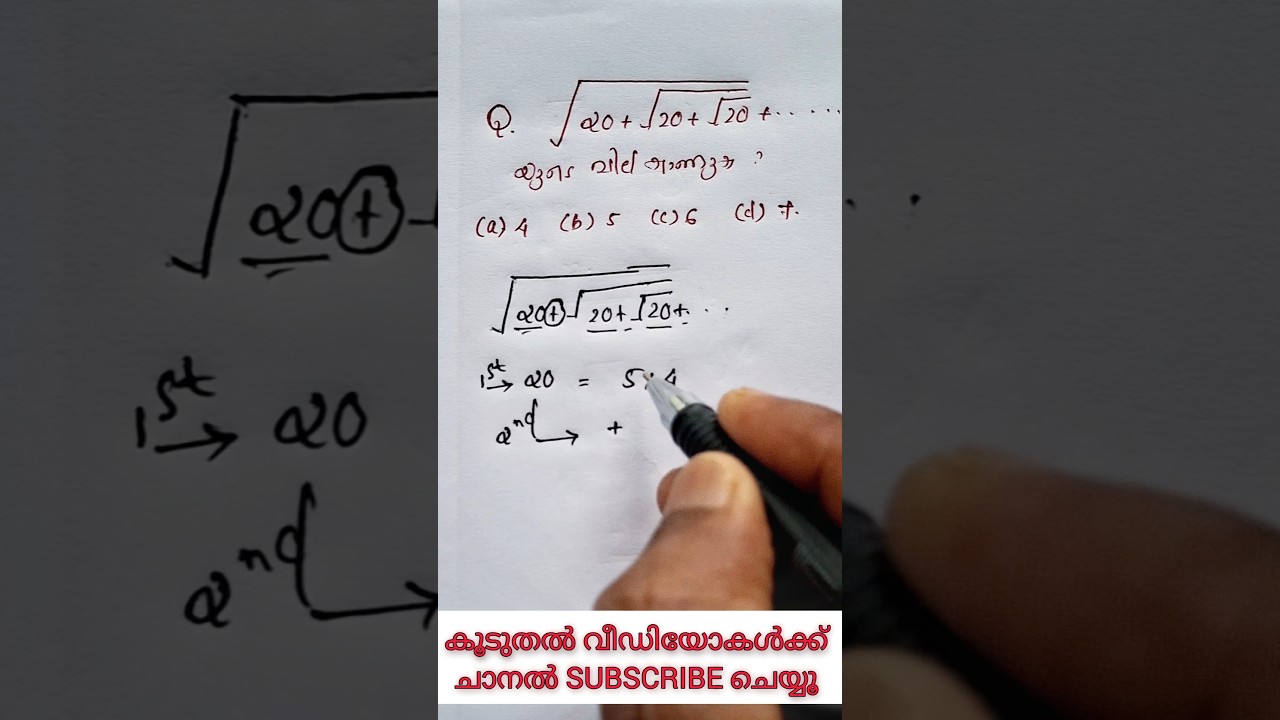 Q. √20 + √20 + √20 + ......
യുടെ വില കാണുക ?
(a) 4 (b) 5 (c) 6 (d) 7.
√20 + √20 + √20 + ...
1st → 20 = 5 × 4
2nd → +
കൂടുതൽ വീഡിയോകൾക്ക്
ചാനൽ SUBSCRIBE ചെയ്യൂ